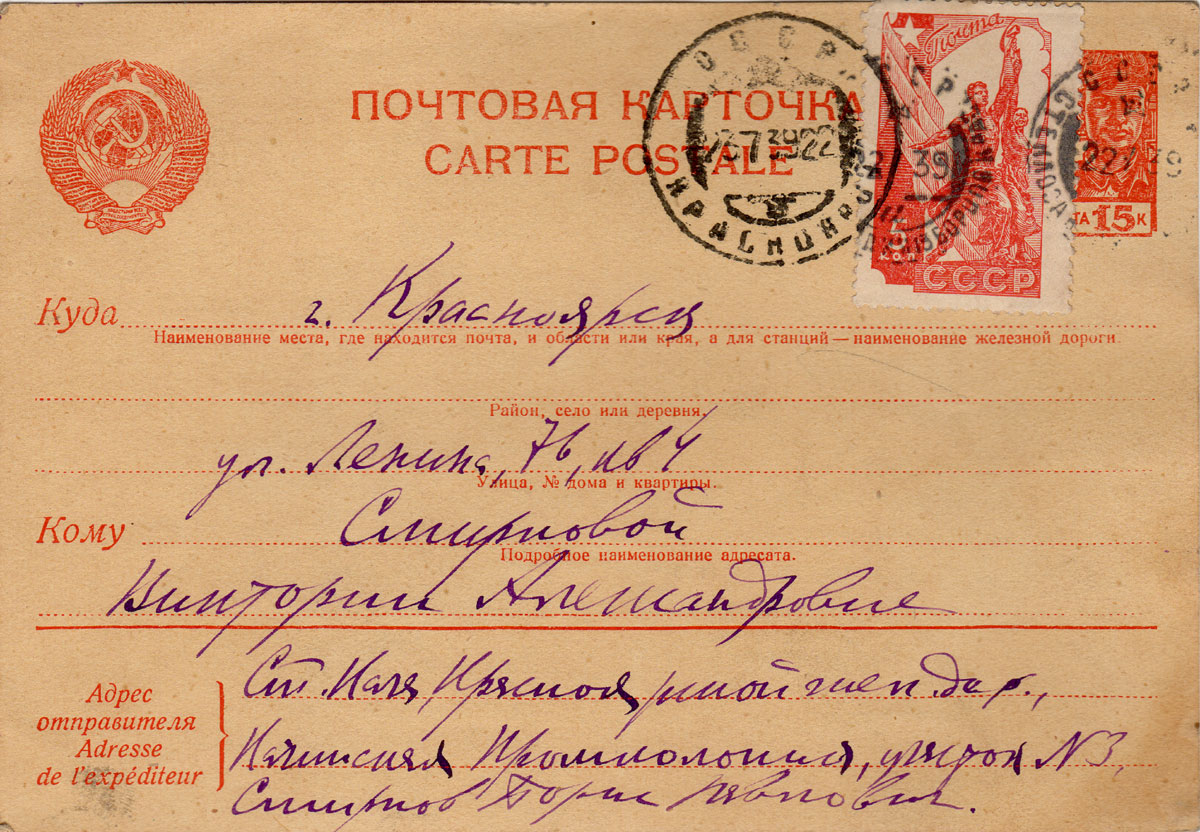 ПОЧТОВАЯ КАРТОЧКА
CARTE POSTALE
СССР
КРАСНОЯРСК
Почта
5 коп
СССР
15 К
Куда г. Красноярск
Наименование места, где находится почта, и области или края, а для станций — наименование железной дороги.
Район, село или деревня.
ул. Ленина, 76, кв 4
Улица, № дома и квартиры.
Кому Смирновой
Подробное наименование адресата.
Виктории Александровне
Адрес отправителя
Adresse de l'expéditeur
Ст. Канск Красноярской жел. дор.,
Промколония, участок № 3,
Смирнов Борис Павлович.